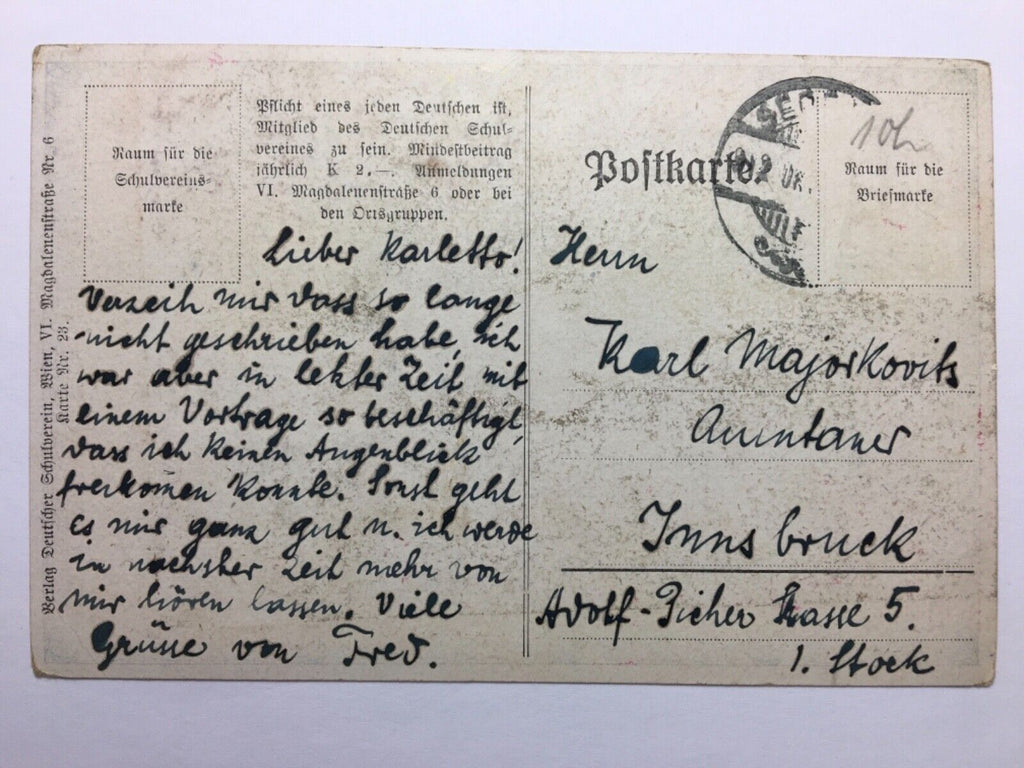 Raum für die
Schulvereins-
marke
Pflicht eines jeden Deutschen ist,
Mitglied des Deutschen Schul-
vereines zu sein. Mindestbeitrag
jährlich K 2.—. Anmeldungen
VI. Magdalenenstraße 6 oder bei
den Ortsgruppen.
Postkarte.
Raum für die
Briefmarke
10h
Verlag Deutscher Schulverein, Wien, VI. Magdalenenstraße Nr. 6
Karte Nr. 23.
Lieber Karletto!
Verzeih mir dass so lange
nicht geschrieben habe, ich
war aber in letzter Zeit mit
einem Vortrage so beschäftigt,
dass ich keinen Augenblick
freikomen konnte. Sonst geht
es mir ganz gut u. ich werde
in nächster Zeit mehr von
mir hören lassen. Viele
Grüsse von Fred.
Herrn
Karl Majorkovits
Innsbruck
Adolf-Picher Strasse 5.
1. Stock